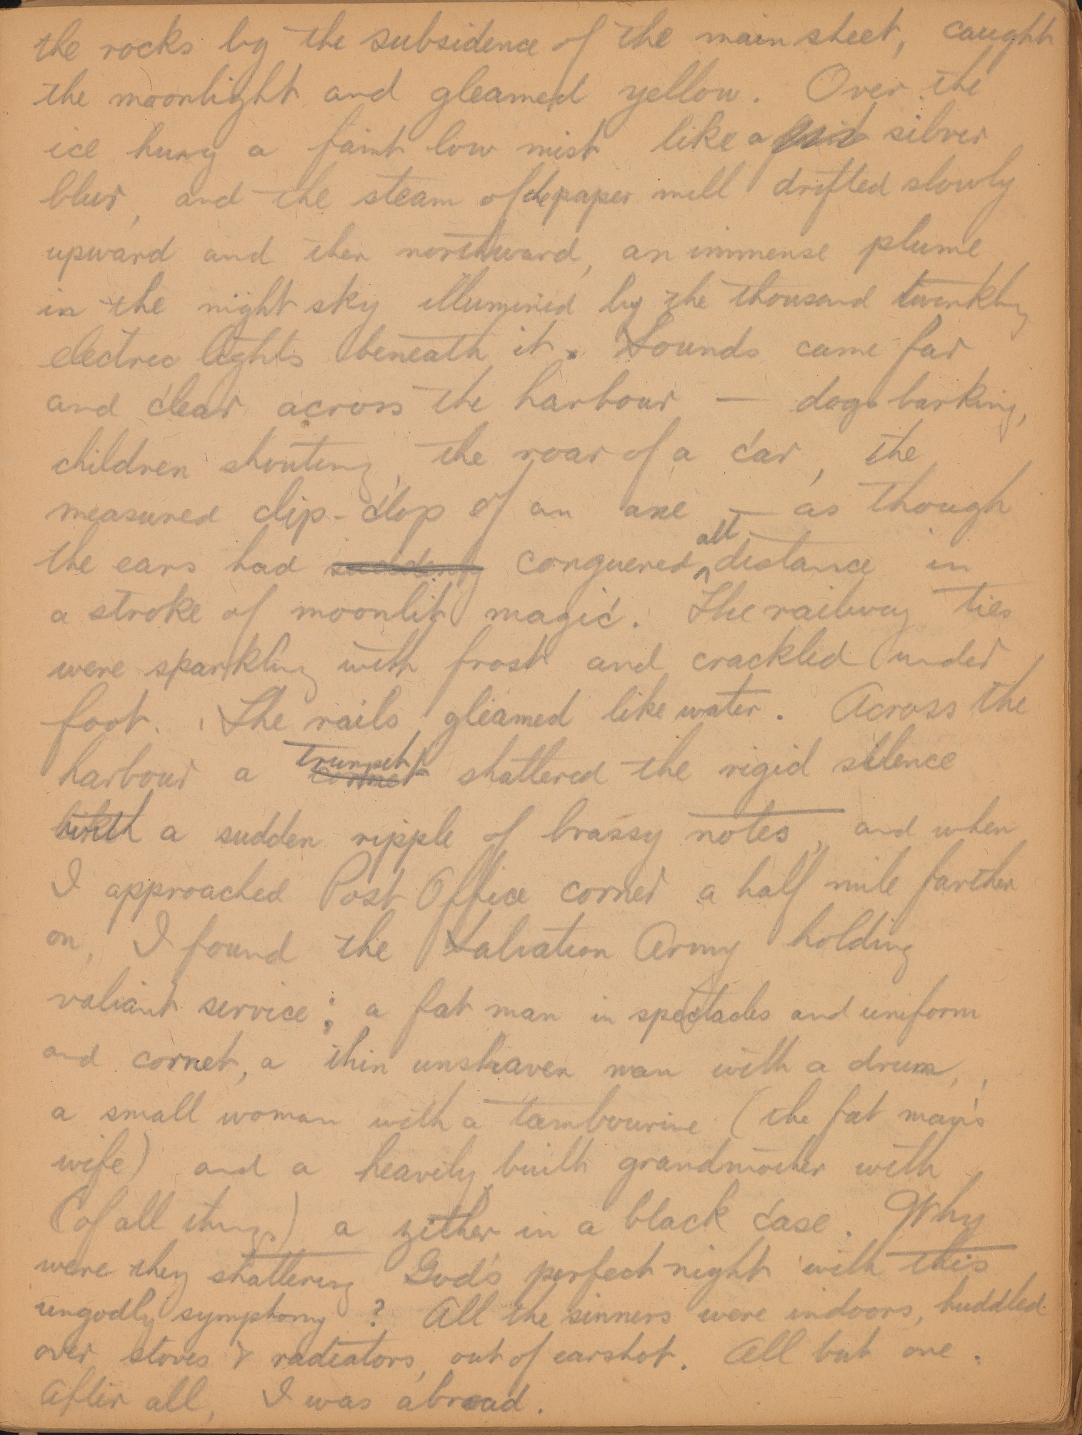 the rocks by the subsidence of the main sheet, caught
the moonlight and gleamed yellow. Over the
ice hung a faint low mist like a silver
blur, and the steam of the paper mill drifted slowly
upward and then northward, an immense plume
in the night sky illumined by the thousand twinkling
electric lights beneath it. Sounds came far
and clear across the harbour — dogs barking,
children shouting, the roar of a car, the
measured clip-clop of an axe — as though
the ears had suddenly conquered all distance in
a stroke of moonlit magic. The railway ties
were sparkling with frost and crackled under
foot. The rails gleamed like water. Across the
harbour a trumpet cornet shattered the rigid silence
with a sudden ripple of brassy notes, and when
I approached Post Office corner a half mile farther
on, I found the Salvation Army holding
valiant service; a fat man in spectacles and uniform
and cornet, a thin unshaven man with a drum,
a small woman with a tambourine (the fat man's
wife) and a heavily built grandmother with
(of all things) a zither in a black case. Why
were they shattering God's perfect night with this
ungodly symphony? All the sinners were indoors, huddled
over stoves & radiators, out of earshot. All but one.
After all, I was abroad.